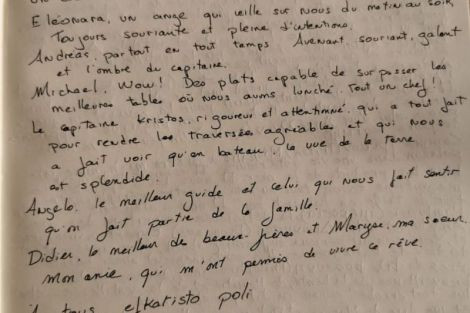 Eleonara, un ange qui veille sur nous du matin au soir,
Toujours souriante et pleine d'intentions.
Andréas, partout en tout temps Avenant, souriant, galant
et l'ombre du capitaine.
Michael, Wow! Des plats capable de surpasser les
meilleures tables où nous avons lunché. Tout un chef!
Le capitaine Kristos, rigoureux et attentionné, qui a tout fait
pour rendre les traversées agréables et qui nous
a fait voir qu'en bateau, la vue de la terre
est splendide.
Angelo, le meilleur guide et celui qui nous fait sentir
qu'on fait partie de la famille.
Didier, le meilleur de beaux-frères et Maryse, ma soeur,
mon amie, qui m'ont permis de vivre ce rêve.
tous efkaristo poli